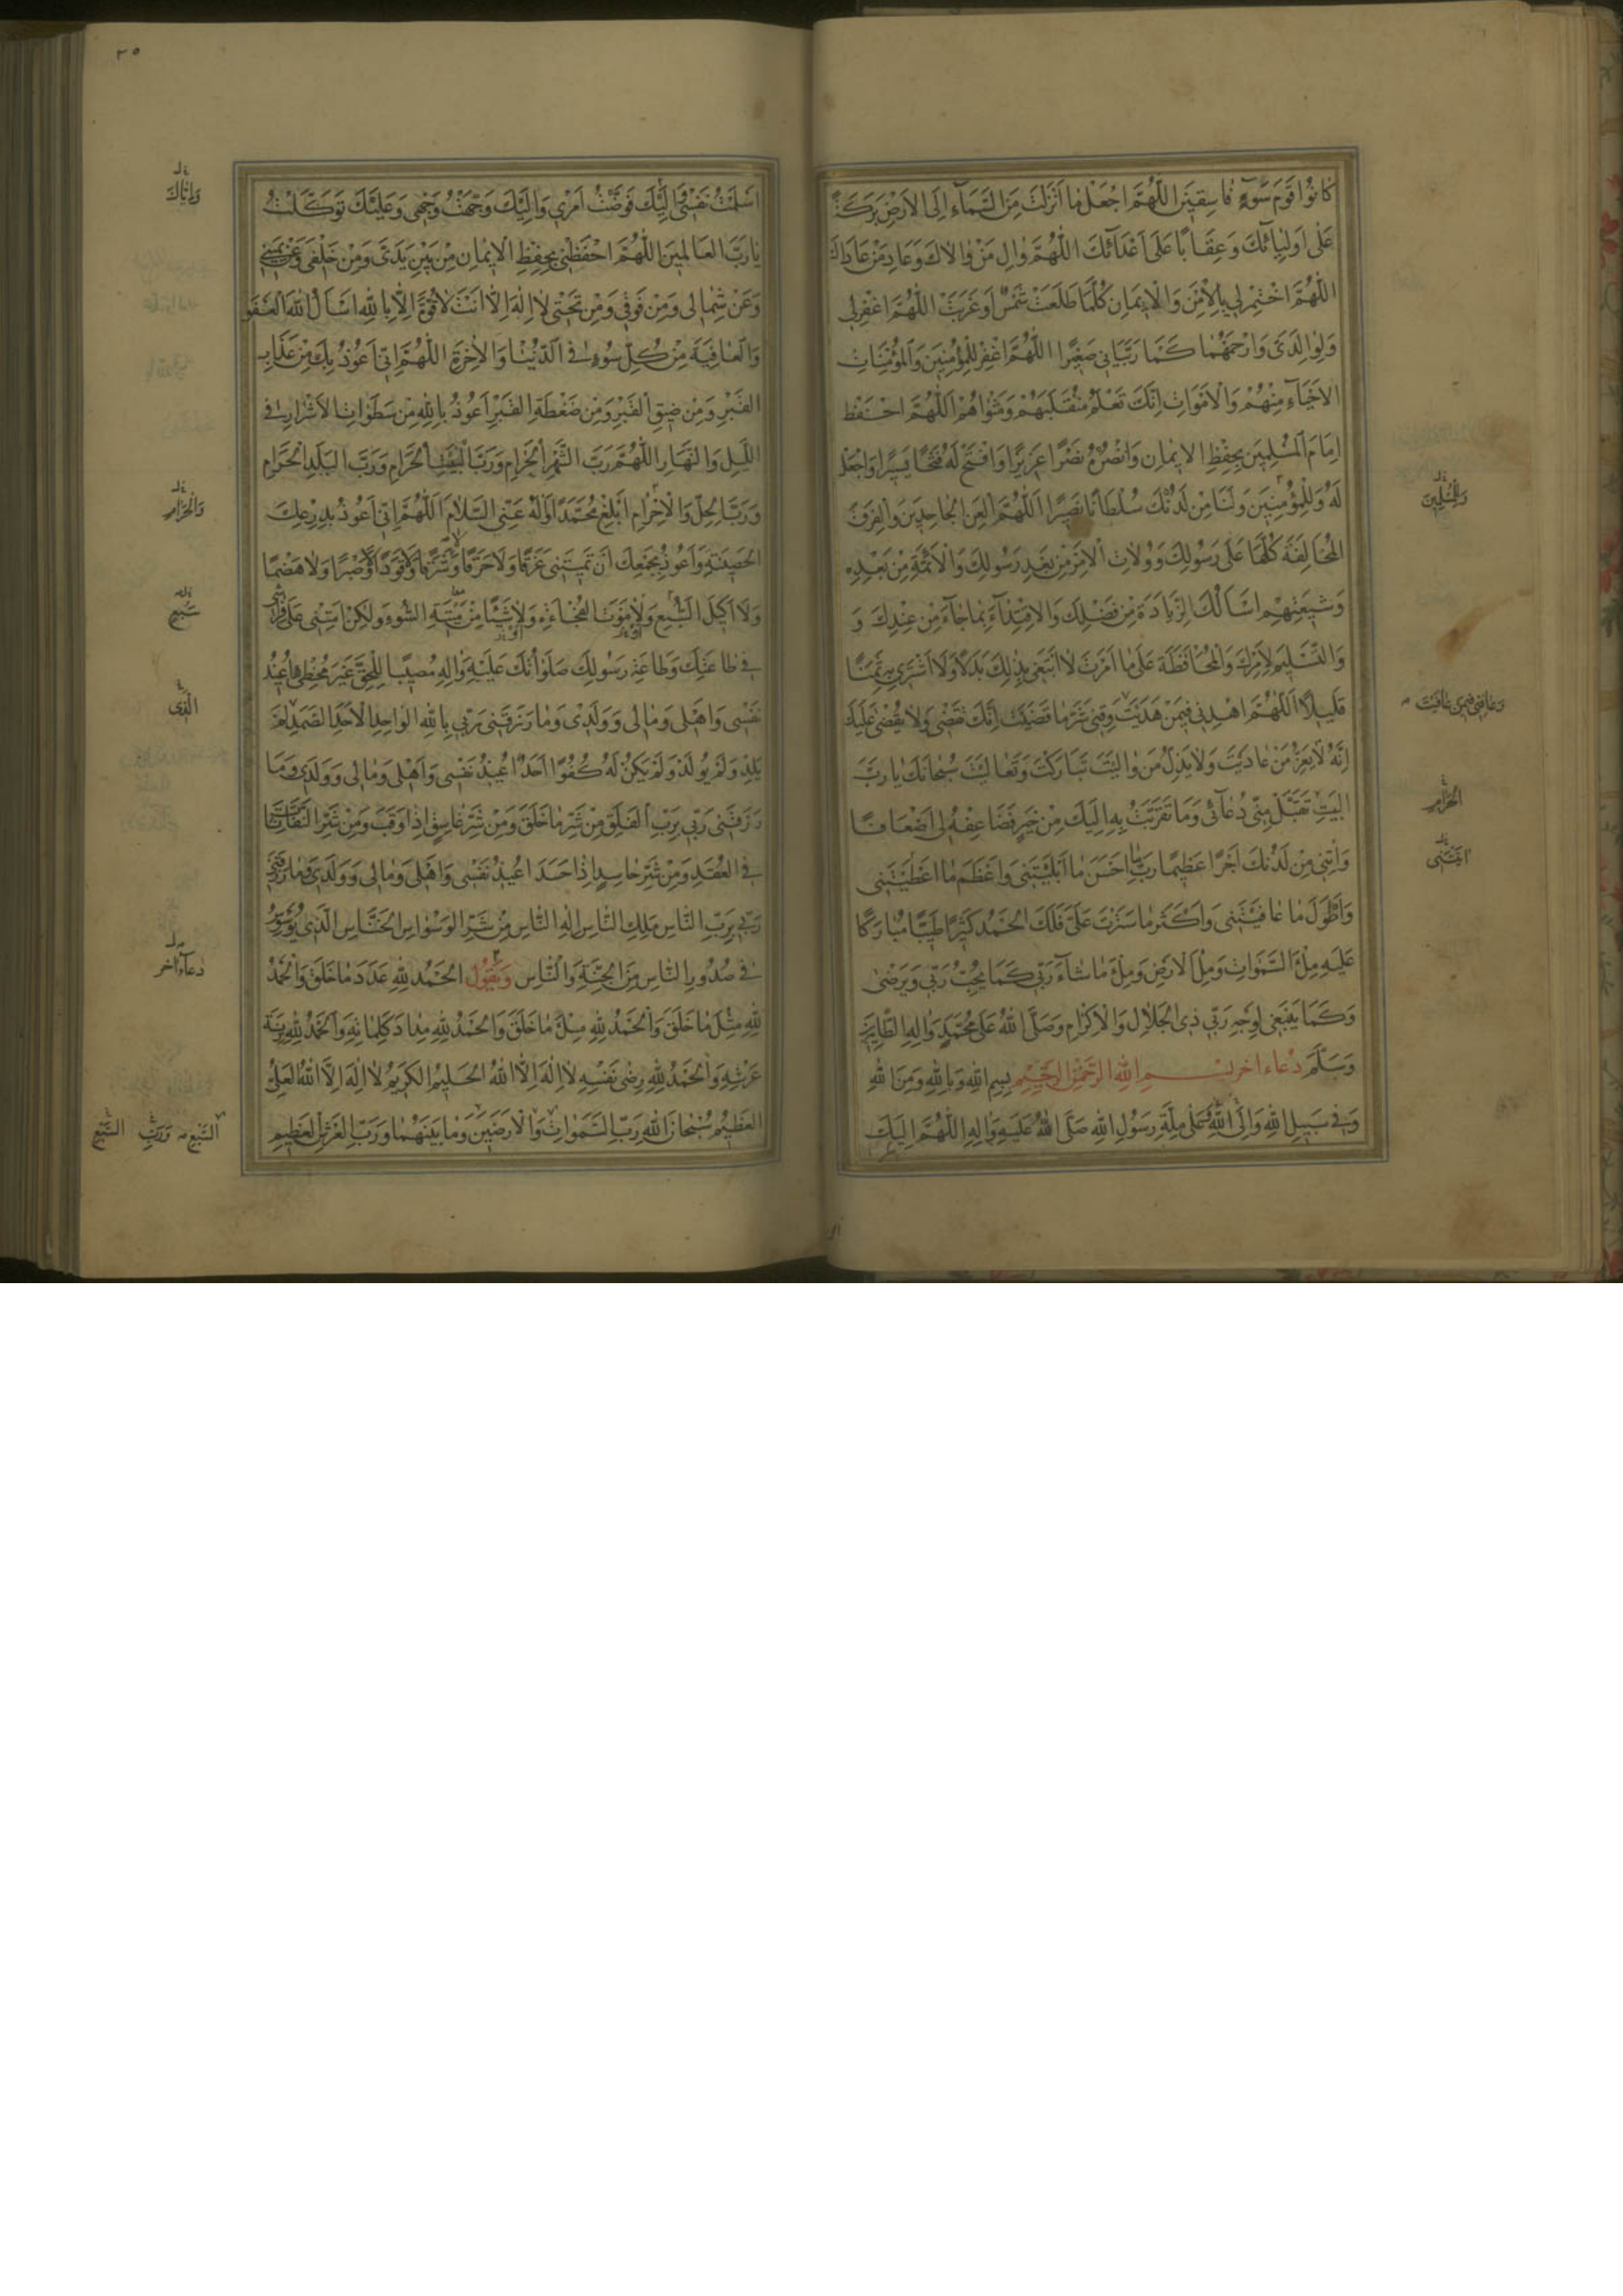 كانُوا قَوْمَ سَوْءٍ فاسِقينَ اللّهُمَّ اجْعَلْ ما اَنْزَلْتَ مِنَ السَّمآءِ اِلَى الاَرْضِ بَرَكَةً
عَلى اَوْلِيآئِكَ وَعِقاباً عَلى اَعْدآئِكَ اللّهُمَّ والِ مَنْ والاكَ وَعادِ مَنْ عاداكَ
اللّهُمَّ اخْتِمْ لي بِالاَمْنِ وَالايمانِ كُلَّما طَلَعَتْ شَمْسٌ اَوْ غَرَبَتْ اللّهُمَّ اغْفِرْ لي
وَلِوالِدَىَّ وَارْحَمْهُما كَما رَبَّياني صَغيرًا اللّهُمَّ اغْفِرْ لِلْمُؤْمِنينَ وَالْمُؤْمِناتِ
الاَحْيآءِ مِنْهُمْ وَالاَمْواتِ اِنَّكَ تَعْلَمُ مُنْقَلَبَهُمْ وَمَثْواهُمْ اَللّهُمَّ احْفَظْ
اِمامَ الْمُسْلِمينَ بِحِفْظِ الايمانِ وَانْصُرْهُ نَصْرًا عَزيزًا وَافْتَحْ لَهُ فَتْحًا يَسيرًا وَاجْعَلْ
لَهُ وَلِلْمُؤْمِنينَ وَلَنا مِنْ لَدُنْكَ سُلْطانًا نَصيرًا اَللّهُمَّ الْعَنِ الجاحِدينَ وَالفِرَقَ
المُخالِفَةَ كُلَّها عَلى رَسُولِكَ وَوُلاتِ الاَمْرِ مِنْ بَعْدِ رَسُولِكَ وَالاَئِمَّةِ مِنْ بَعْدِهِ
وَشيعَتِهِمْ اَسْاَلُكَ الزِّيادَةَ مِنْ فَضْلِكَ وَالاِقْتِدآءَ بِما جآءَ مِنْ عِنْدِكَ وَ
وَالتَّسْليمَ لِاَمْرِكَ وَالمُحافَظَةَ عَلى ما اَمَرْتَ لا اَبْتَغي بِذلِكَ بَدَلًا وَلا اَشْتَري بِهِ ثَمَنًا
قَليلًا اَللّهُمَّ اهْدِني فيمَنْ هَدَيْتَ وَقِني شَرَّ ما قَضَيْتَ اِنَّكَ تَقْضي وَلا يُقْضى عَلَيْكَ
اِنَّهُ لا يَعِزُّ مَنْ عادَيْتَ وَلا يَذِلُّ مَنْ والَيْتَ تَبارَكْتَ وَتَعالَيْتَ سُبْحانَكَ يا رَبَّ
البَيْتِ تَقَبَّلْ مِنّي دُعآئي وَما تَقَرَّبْتُ بِهِ اِلَيْكَ مِنْ خَيْرٍ فَضاعِفْهُ لي اَضْعافًا
وَاتِني مِنْ لَدُنْكَ اَجْرًا عَظيمًا رَبِّ ما اَحْسَنَ ما اَبْلَيْتَني وَاَعْظَمَ ما اَعْطَيْتَني
وَاَطْوَلَ ما عافَيْتَني وَاَكْثَرَ ما سَتَرْتَ عَلَيَّ فَلَكَ الحَمْدُ كَثيرًا طَيِّبًا مُبارَكًا
عَلَيْهِ مِلْءَ السَّمواتِ وَمِلْءَ الاَرْضِ وَمِلْءَ ما شآءَ رَبّي كَما يُحِبُّ رَبّي وَيَرْضى
وَكَما يَنْبَغي لِوَجْهِ رَبّي ذِي الجَلالِ وَالاِكْرامِ وَصَلَّى اللهُ عَلى مُحَمَّدٍ وَالِهِ الطّاهِرينَ
وَسَلَّمَ دُعاء اخر بِسْمِ اللهِ الرَّحْمنِ الرَّحيمِ بِسْمِ اللهِ وَبِاللهِ وَمِنَ اللهِ
وَفي سَبيلِ اللهِ وَاِلَى اللهِ وَعَلى مِلَّةِ رَسُولِ اللهِ صَلَّى اللهُ عَلَيْهِ وَالِهِ اَللّهُمَّ اِلَيْكَ
وَالْمُسْلِمينَ
وَعافِني فيمَن عافَيْتَ
الحَرامِ
٢٥
اَسْلَمْتُ نَفْسي وَاِلَيْكَ فَوَّضْتُ اَمْري وَاِلَيْكَ وَجَّهْتُ وَجْهي وَعَلَيْكَ تَوَكَّلْتُ
يا رَبَّ العالَمينَ اللّهُمَّ احْفَظْني بِحِفْظِ الايمانِ مِنْ بَيْنِ يَدَيَّ وَمِنْ خَلْفي وَعَنْ يَميني
وَعَنْ شِمالي وَمِنْ فَوْقي وَمِنْ تَحْتي لا اِلهَ اِلّا اَنْتَ لا قُوَّةَ اِلّا بِاللهِ اَسْاَلُ اللهَ العَفْوَ
وَالعافِيَةَ مِنْ كُلِّ سُوءٍ فِي الدُّنْيا وَالاخِرَةِ اللّهُمَّ اِنّي اَعُوذُ بِكَ مِنْ عَذابِ
القَبْرِ وَمِنْ ضيقِ القَبْرِ وَمِنْ ضَغْطَةِ القَبْرِ اَعُوذُ بِاللهِ مِنْ سَطَواتِ الاَشْرارِ فِي
اللَّيْلِ وَالنَّهارِ اللّهُمَّ رَبَّ الشَّهْرِ الحَرامِ وَرَبَّ البَيْتِ الحَرامِ وَرَبَّ البَلَدِ الحَرامِ
وَرَبَّ الحِلِّ وَالاِحْرامِ اَبْلِغْ مُحَمَّدًا وَالَهُ عَنِّي السَّلامَ اَللّهُمَّ اِنّي اَعُوذُ بِدِرْعِكَ
الحَصينَةِ وَاَعُوذُ بِجَمْعِكَ اَنْ تُميتَني غَرَقًا وَلا حَرَقًا وَشَرَقًا وَقَوَدًا وَصَبْرًا وَلا هَضْمًا
وَلا اَكيلَ السَّبُعِ وَلا مَوْتَ الفُجاءَةِ وَلا شَيْئًا مِنْ ميتَةِ السُّوءِ وَلكِنْ اَمِتْني عَلى فِراشي
في طاعَتِكَ وَطاعَةِ رَسُولِكَ صَلَواتُكَ عَلَيْهِ وَالِهِ مُصيبًا لِلْحَقِّ غَيْرَ مُخْطِئٍ اُعيذُ
نَفْسي وَاَهْلي وَمالي وَوَلَدي وَما رَزَقَني رَبّي بِاللهِ الواحِدِ الاَحَدِ الصَّمَدِ لَمْ
يَلِدْ وَلَمْ يُولَدْ وَلَمْ يَكُنْ لَهُ كُفُوًا اَحَدٌ اُعيذُ نَفْسي وَاَهْلي وَمالي وَوَلَدي وَما
رَزَقَني رَبّي بِرَبِّ الفَلَقِ مِنْ شَرِّ ما خَلَقَ وَمِنْ شَرِّ غاسِقٍ اِذا وَقَبَ وَمِنْ شَرِّ النَّفّاثاتِ
فِي العُقَدِ وَمِنْ شَرِّ حاسِدٍ اِذا حَسَدَ اُعيذُ نَفْسي وَاَهْلي وَمالي وَوَلَدي وَما رَزَقَني
رَبّي بِرَبِّ النّاسِ مَلِكِ النّاسِ اِلهِ النّاسِ مِنْ شَرِّ الوَسْواسِ الخَنّاسِ الَّذي يُوَسْوِسُ
في صُدُورِ النّاسِ مِنَ الجِنَّةِ وَالنّاسِ وَيَقُولُ الحَمْدُ لِلّهِ عَدَدَ ما خَلَقَ وَالحَمْدُ
لِلّهِ مِثْلَ ما خَلَقَ وَالحَمْدُ لِلّهِ مِلْءَ ما خَلَقَ وَالحَمْدُ لِلّهِ مِدادَ كَلِماتِهِ وَالحَمْدُ لِلّهِ زِنَةَ
عَرْشِهِ وَالحَمْدُ لِلّهِ رِضى نَفْسِهِ لا اِلهَ اِلّا اللهُ الحَليمُ الكَريمُ لا اِلهَ اِلّا اللهُ العَلِيُّ
العَظيمُ سُبْحانَ اللهِ رَبِّ السَّمواتِ وَالاَرَضينَ وَما بَيْنَهُما وَرَبِّ العَرْشِ العَظيمِ
وَاِيّاكَ
وَالحَرامِ
سَبُعٍ
الَّذي
دعآء اخر
السَّبْعِ وَرَبِّ السَّبْعِ